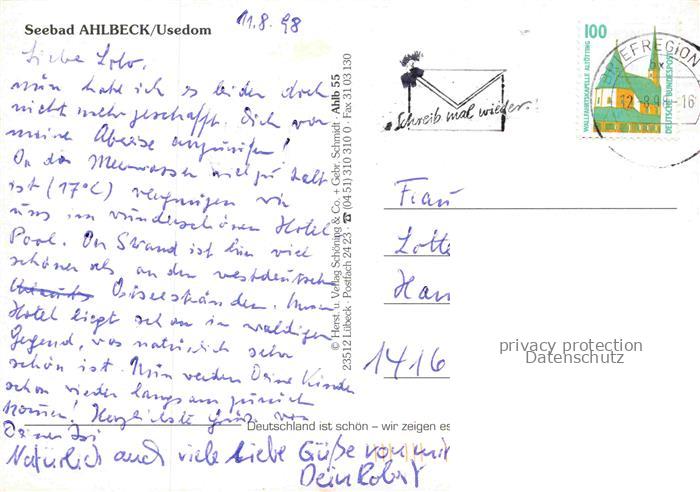 Seebad AHLBECK/Usedom
11.8.98
Liebe Lolo,
nun habe ich es leider doch
nicht mehr geschafft, Dich vor
meine Abreise anzurufen!
Da das Meerwasser viel zu kalt
ist (17°C) vergnügen wir
uns im wunderschönen Hotel
Pool. Der Strand ist hier viel
schöner als an den westdeutschen
Ostseestränden. Unser
Hotel liegt schon in waldiger
Gegend, was natürlich sehr
schön ist. Nun werden Deine Kinder
schon wieder langsam zurück
kommen! Herzlichste Grüße von
Deiner
Natürlich auch viele liebe Güße von mir
Dein Robert
© Herst. u. Verlag Schöning & Co. + Gebr. Schmidt · Ahlb 55
23512 Lübeck · Postfach 24 23 · ☎ (04 51) 310 310 0 · Fax 31 03 130
Deutschland ist schön – wir zeigen es
Schreib mal wieder!
100
WALLFAHRTSKAPELLE ALTÖTTING
DEUTSCHE BUNDESPOST
BRIEFREGION
12.8.98-16
Frau
Lotte
Han
1416
privacy protection
Datenschutz